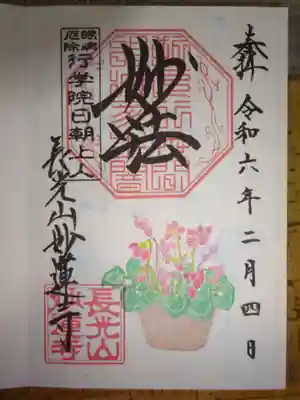 奉拝 令和六年二月四日
妙法
眼病
厄除
行学院日朝上人
長光山妙蓮寺
長光山
妙蓮寺